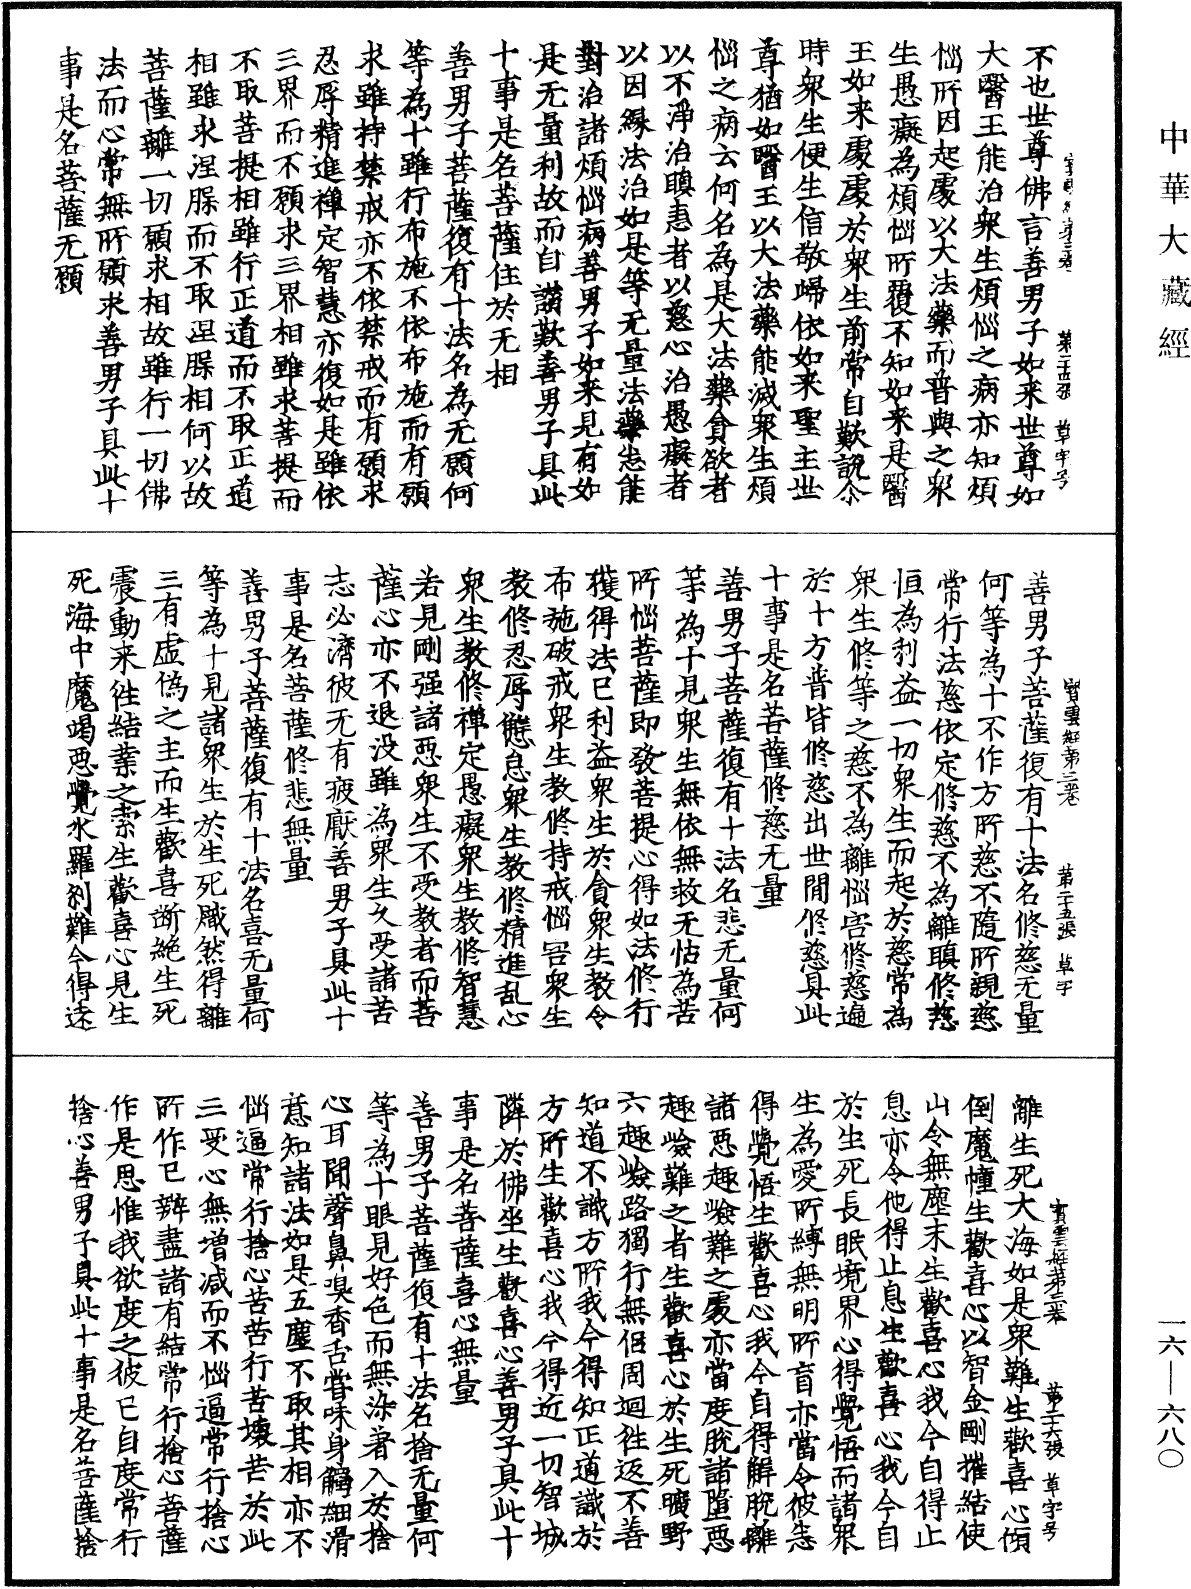 中華大藏經
不也世尊佛言善男子如来世尊如
大醫王能治衆生煩惱之病亦知煩
惱所因起處以大法藥而普與之衆
生愚癡為煩惱所覆不知如来是醫
王如来處處於衆生前常自歎說尒
時衆生便生信敬歸依如来聖主世
尊猶如醫王以大法藥能滅衆生煩
惱之病云何名為是大法藥貪欲者
以不淨治瞋恚者以慈心治愚癡者
以因緣法治如是等无量法藥悉能
對治諸煩惱病善男子如来見有如
是无量利故而自讃歎善男子具此
十事是名菩薩住於无相
善男子菩薩復有十法名為无願何
等為十雖行布施不依布施而有願
求雖持禁戒亦不依禁戒而有願求
忍辱精進禪定智慧亦復如是雖依
三界而不願求三界相雖求菩提而
不取菩提相雖行正道而不取正道
相雖求涅脲而不取涅脲相何以故
菩薩離一切願求相故雖行一切佛
法而心常無所願求善男子具此十
事是名菩薩无願
寶雲經第三卷 第二十五張 草字
善男子菩薩復有十法名修慈无量
何等為十不作方所慈不隨所親慈
常行法慈依定修慈不為離瞋修慈
恒為利益一切衆生而起於慈常為
衆生修等之慈不為離惱害修慈遍
於十方普皆修慈出世間修慈具此
十事是名菩薩修慈无量
善男子菩薩復有十法名悲无量何
等為十見衆生無依無救无怙為苦
所惱菩薩即發菩提心得如法修行
獲得法已利益衆生於貪衆生教令
布施破戒衆生教修持戒惱害衆生
教修忍辱懈怠衆生教修精進乱心
衆生教修禪定愚癡衆生教修智慧
若見剛强諸惡衆生不受教者而菩
薩心亦不退没雖為衆生久受諸苦
志必濟彼无有疲厭善男子具此十
事是名菩薩修悲無量
善男子菩薩復有十法名喜无量何
等為十見諸衆生於生死熾然得離
三有虛偽之主而生歡喜斷絕生死
震動来往結業之索生歡喜心見生
死海中魔竭惡覺水羅刹難令得遠
寶雲經第三卷 第二十六張 草字号
離生死大海如是衆難生歡喜心傾
倒魔幢生歡喜心以智金剛摧結使
山令無塵末生歡喜心我今自得止
息亦令他得止息生歡喜心我今自
於生死長眠境界心得覺悟而諸衆
生為愛所縛無明所盲亦當令彼悉
得覺悟生歡喜心我今自得解脫離
諸惡趣嶮難之處亦當度脫諸墮惡
趣嶮難之者生歡喜心於生死曠野
六趣嶮路獨行無侶周迴往返不善
知道不識方所我今得知正道識於
方所生歡喜心我今得近一切智城
隣於佛坐生歡喜心善男子具此十
事是名菩薩喜心無量
善男子菩薩復有十法名捨无量何
等為十眼見好色而無染著入於捨
心耳聞聲鼻嗅香舌甞味身觸細滑
意知諸法如是五塵不取其相亦不
惱逼常行捨心苦苦行苦壞苦於此
三受心無增減而不惱逼常行捨心
所作已辦盡諸有結常行捨心菩薩
作是思惟我欲度之彼已自度常行
捨心善男子具此十事是名菩薩捨
一六—六八〇